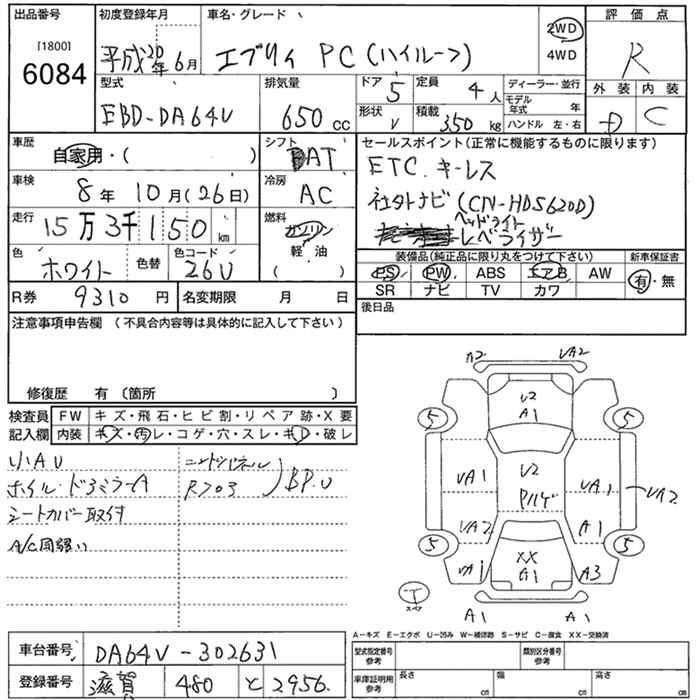 出品番号 初度登録年月 車名・グレード 評価点
[1800] 6084
平成20年6月 エブリィ PC(ハイルーフ) 2WD R
4WD
型式 排気量 ドア 定員 ディーラー・並行 外装 内装
EBD-DA64V 650cc 5 4人 モデル年式 年 D C
形状 V 積載 350kg ハンドル 左・右
車歴 シフト セールスポイント(正常に機能するものに限ります)
自家用・( ) AT ETC.キーレス
車検 8年10月(26日) 冷房 AC 社外ナビ(CN-HDS620D)
走行 15万3千150km 燃料 ガソリン 軽油 ( ) ヘッドライト
レベライザー
色 ホワイト 色替 色コード 26U
装備品(純正品に限り丸をつけて下さい) 新車保証書
PS PW ABS エアB AW 有・無
SR ナビ TV カワ
R券 9310円 名変期限 月 日 後日品
注意事項申告欄(不具合内容等は具体的に記入して下さい)
修復歴 有(箇所 )
検査員記入欄 FW キズ・飛石・ヒビ割・リペア跡・X要
内装 キズ・汚レ・コゲ・穴・スレ・キレ・破レ
小AU
ホイル・ドアミラーA R703 BP.U
シートカバー取付
A/C
A2 UA2
U2
A1
5 5
UA1 U2 UA1 UA2
UA2 A1
5 XX 5
UA1 A1 A3
T スペア A1 A1
A-キズ E-エクボ U-凹み W-補修跡 S-サビ C-腐食 XX-交換済
車台番号 DA64V-302631 型式指定番号 参考 類別区分番号 参考
登録番号 滋賀 480 と 2956 車庫証明用 参考 長さ cm 幅 cm 高さ cm